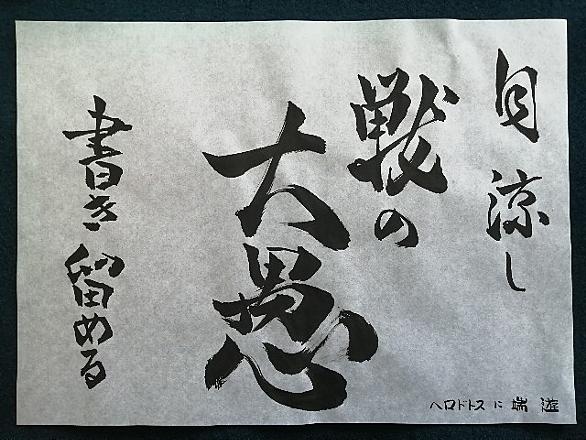 目涼し
戦の
大愚
書き留める
ヘロドトスに 端遊